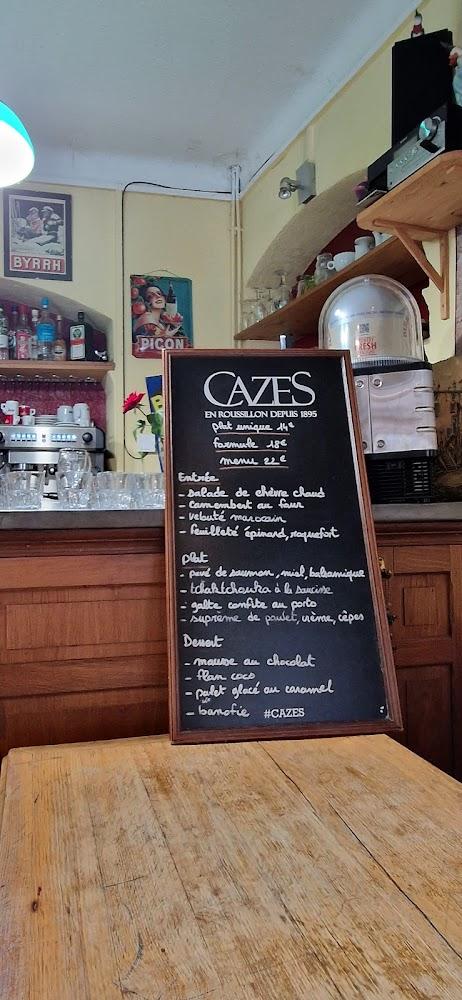 BYRRH
PICON
CAZES
EN ROUSSILLON DEPUIS 1895
plat unique 14€
formule 18€
menu 22€
Entrée
- salade de chèvre chaud
- camembert au four
- velouté marocain
- feuilleté épinard, roquefort
Plat
- pavé de saumon, miel, balsamique
- tchaktchouka à la saucisse
- galte confite au porto
- suprême de poulet, crème, cèpes
Dessert
- mousse au chocolat
- flan coco
- palet glacé au caramel
- banofie #CAZES